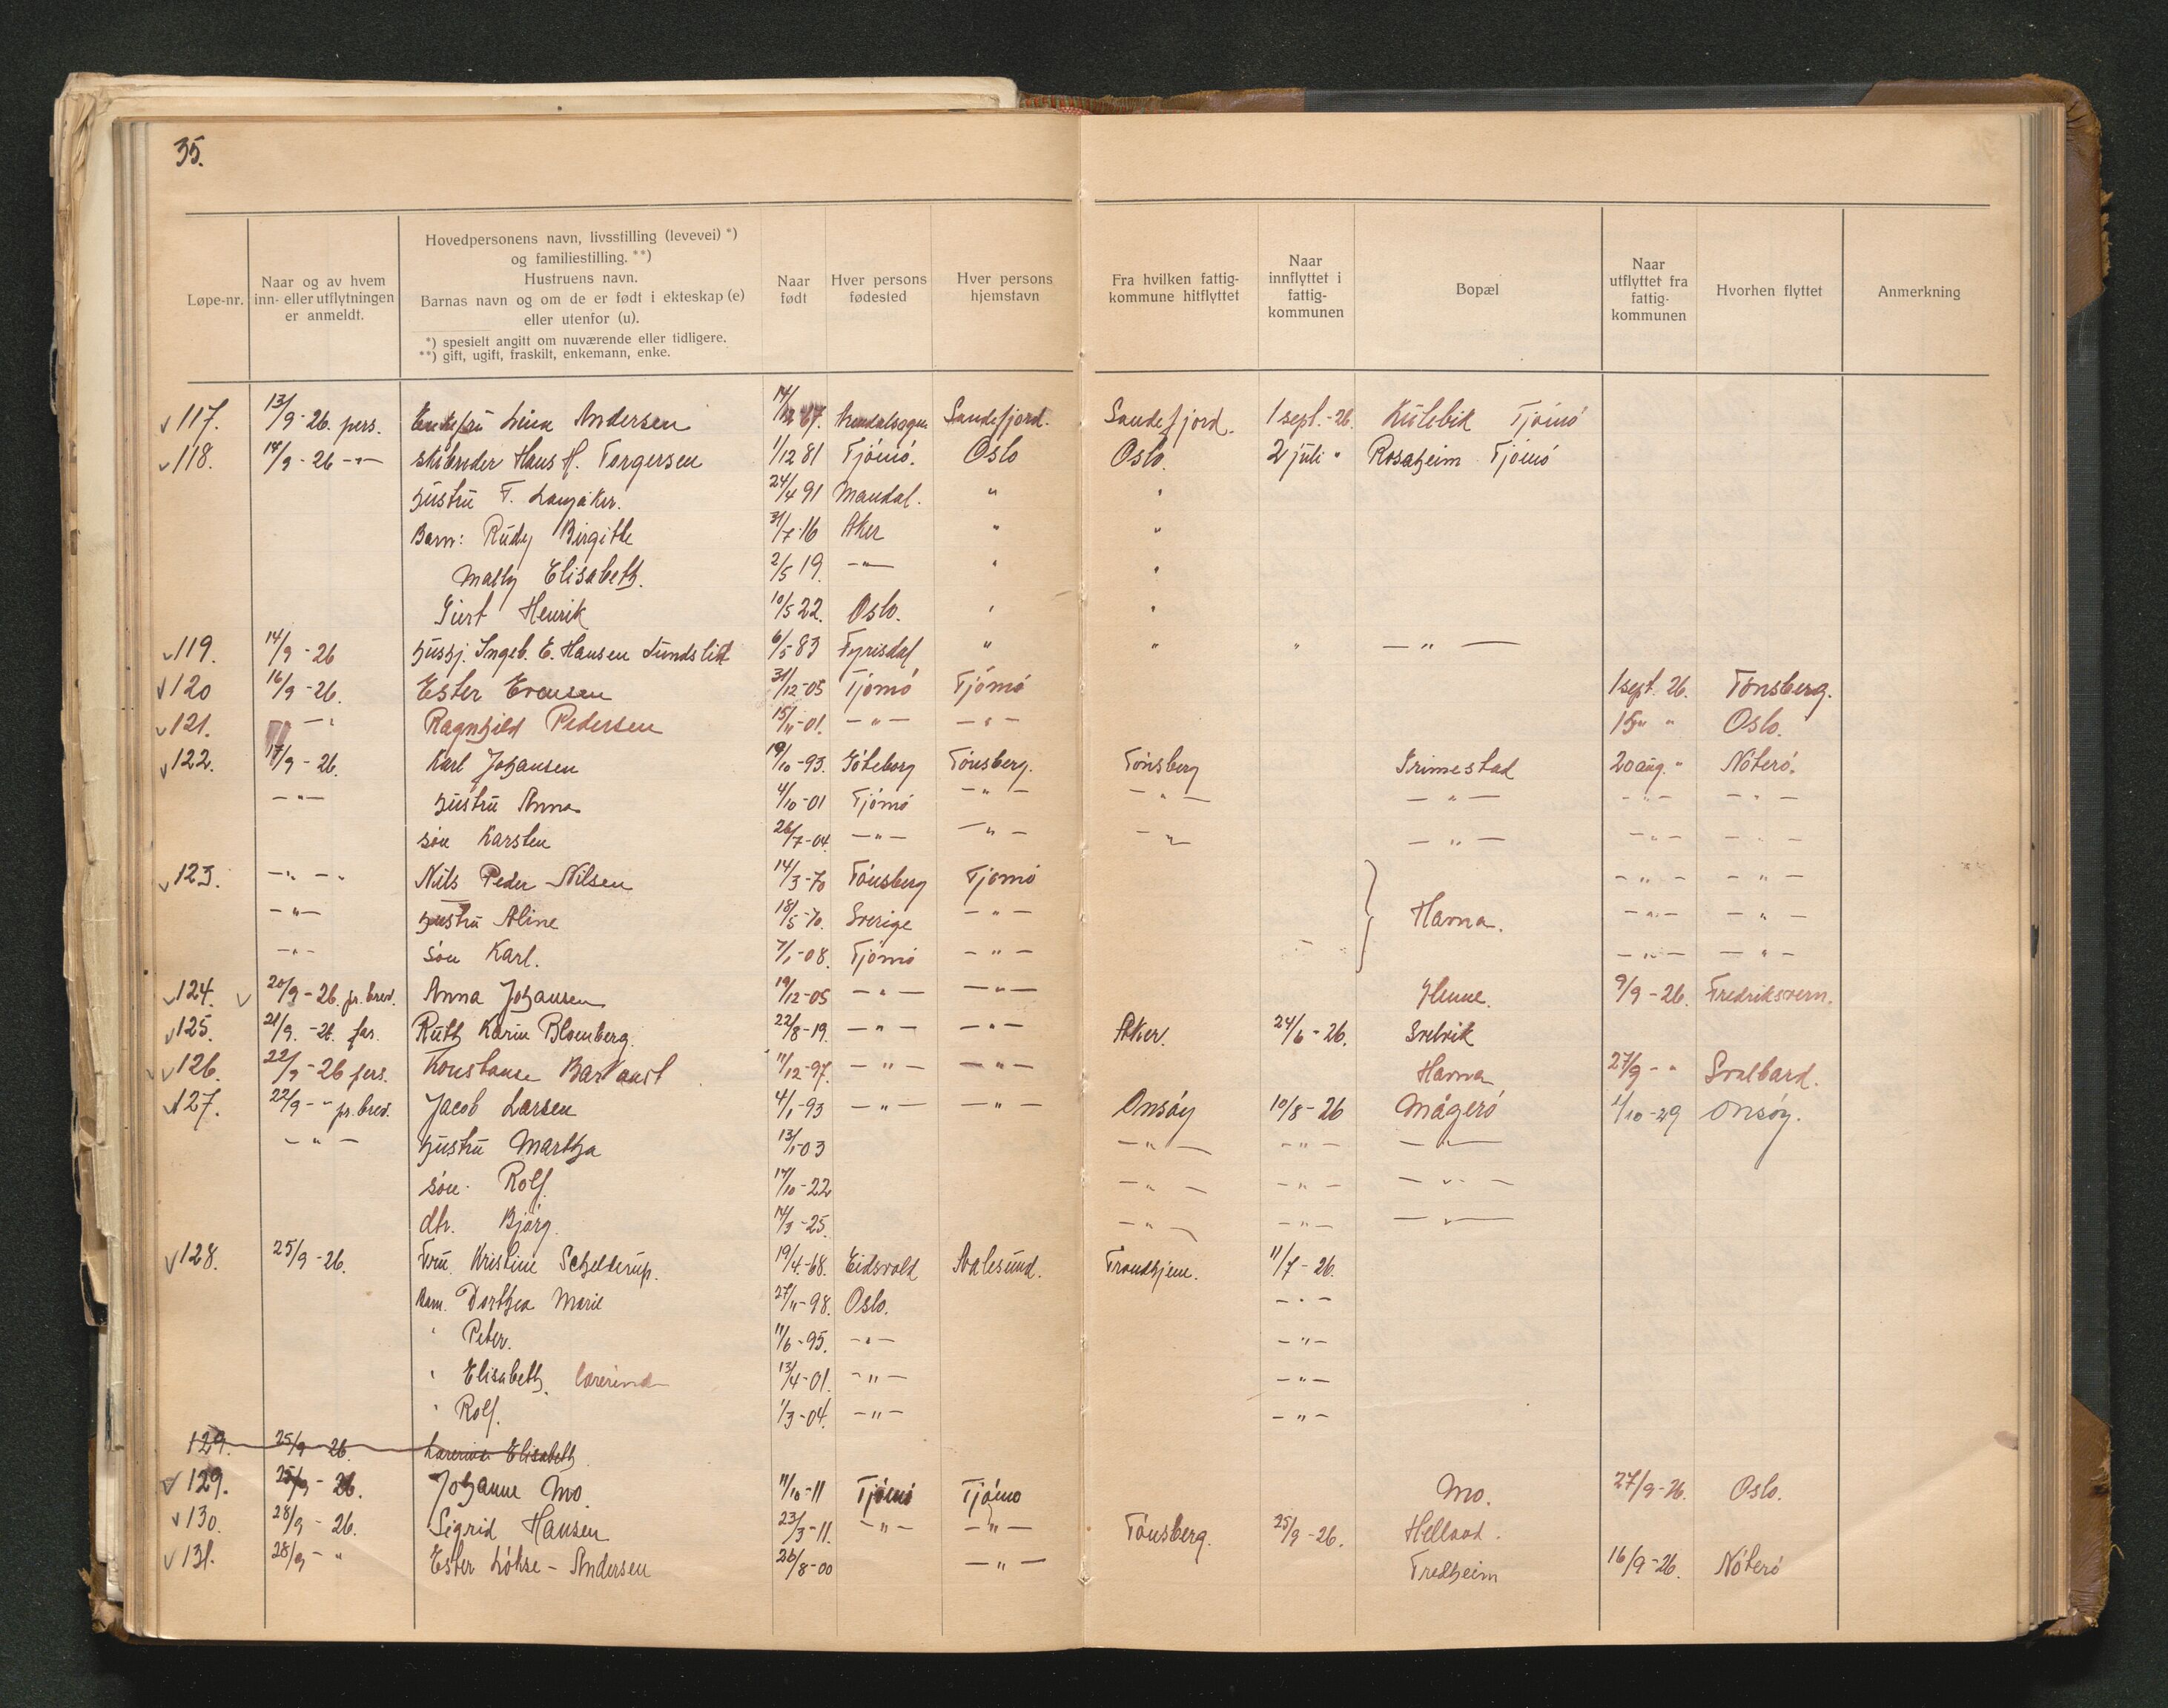 35.
Løpe-nr. | Naar og av hvem inn- eller utflytningen er anmeldt. | Hovedpersonens navn, livsstilling (levevei) *) og familiestilling. **) Hustruens navn. Barnas navn og om de er født i ekteskap (e) eller utenfor (u). *) spesielt angitt om nuværende eller tidligere. **) gift, ugift, fraskilt, enkemann, enke. | Naar født | Hver persons fødested | Hver persons hjemstavn | Fra hvilken fattig-kommune hitflyttet | Naar innflyttet i fattig-kommunen | Bopæl | Naar utflyttet fra fattig-kommunen | Hvorhen flyttet | Anmerkning
117. 13/9-26. pers. Enkefru Lina Andersen 14/12 67. Sandefjord. Sandefjord. 1 sept.-26. Tjømø
118. 14/9-26 -"- skibsreder Hans H. Torgersen 1/12 81 Tjømø. Oslo Oslo. 2 juli " Rosaheim Tjømø
hustru T. Langåker. 24/4 91 Mandal. " "
Barn: Rudy Birgitte 31/7-16 Aker " "
Mally Elisabeth. 2/5 19. -"- " "
Henrik 10/5 22. Oslo. " "
119. 14/9-26 husbj. Ingeb. E. Hansen Sundslid 6/5 83 Fyrisdal " " " -"-
120 16/9-26. Ester Evensen 31/12-05 Tjømø Tjømø 1 sept. 26. Tønsberg.
121. -"- Ragnhild Pedersen 15/11-01. -"- -"- 15" " Oslo.
122. 17/9-26. Karl Johansen 19/10-93. Göteborg Tønsberg. Tønsberg Grimestad 20 aug. " Nøterø.
-"- hustru Anna 4/10-01 Tjømø -"- -"- -"- -"- -"-
søn Karsten 26/7-04. -"- -"- -"- -"- -"- -"-
123. -"- -"- Nils Peder Nilsen 14/3-70 Tønsberg Tjømø -"- -"-
-"- hustru Aline 18/5-70. Sverige -"- Havna. -"- -"-
-"- søn Karl. 7/1-08. Tjømø -"- -"- -"-
124. 20/9-26. pr. brev. Anna Johansen 19/12-05 -"- -"- 9/9-26. Fredriksvern.
125. 21/9.-26. Ruth Karin Blomberg. 22/8-19. -"- -"- Aker. 24/6-26. Svelvik
126. 22/9-26 pers. Konstanse 11/12-97. -"- -"- Havna 27/9-" Svalbard.
127. 22/9-" pr. brev. Jacob Larsen 4/1-93 -"- -"- Onsøy 10/8-26 Mågerø 1/10-29 Onsøy.
-"- hustru Martha 13/1-03 -"- -"- -"-
søn. Rolf. 17/10-22 -"- -"- -"-
dtr. Bjørg. 14/3-25. -"- -"- -"-
128. 25/9-26. Fru Kristine Schelderup. 19/4-68. Eidsvold Aalesund. Trondhjem. 11/7-26.
Barn. Dorthea Marie 27/11-98. Oslo. -"-
" Peter. 11/6-95. -"- -"-
" Elisabeth, lærerinde 13/4-01. -"- -"-
" Rolf. 1/3-04. -"- -"-
129. 25/9-26. Lærerinde Elisabeth.
129. 25/9-26. Johanne Mo. 11/10-11 Tjømø Tjømø Mo. 27/9-26. Oslo.
130. 28/9-26. Sigrid Hansen 23/3-11. -"- -"- Tønsberg. 25/9-26. Helland.
131. 28/9-" Ester Løkse-Andersen 26/8-00 -"- Fredheim 16/9-26. Nøterø